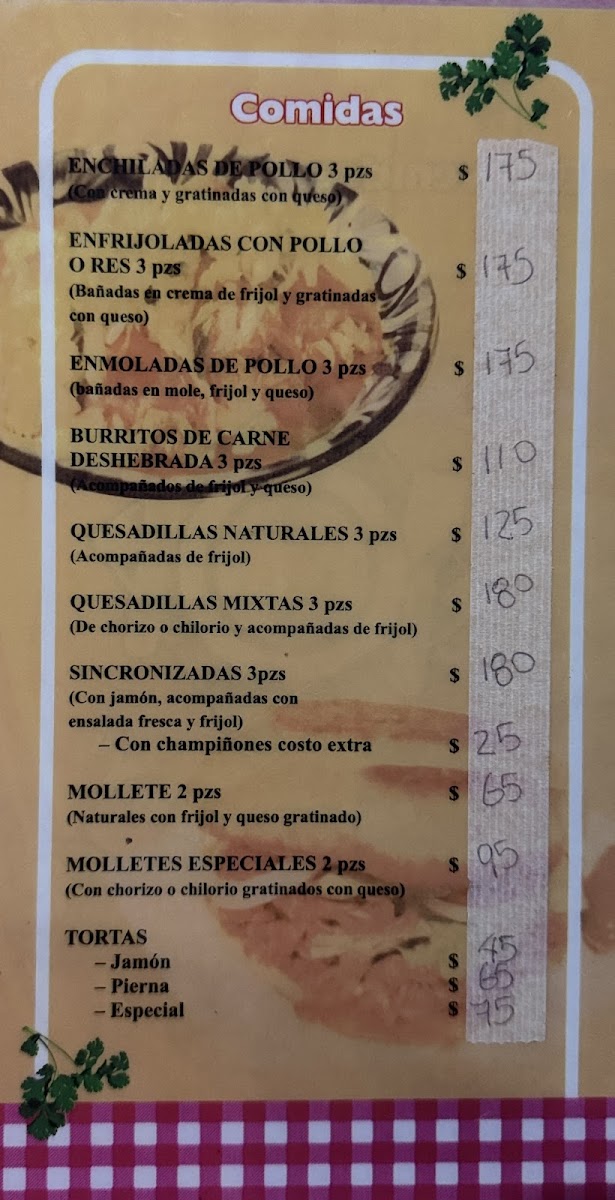 Comidas
ENCHILADAS DE POLLO 3 pzs $ 175
(Con crema y gratinadas con queso)
ENFRIJOLADAS CON POLLO
O RES 3 pzs $ 175
(Bañadas en crema de frijol y gratinadas
con queso)
ENMOLADAS DE POLLO 3 pzs $ 175
(bañadas en mole, frijol y queso)
BURRITOS DE CARNE
DESHEBRADA 3 pzs $ 110
(Acompañados de frijol y queso)
QUESADILLAS NATURALES 3 pzs $ 125
(Acompañadas de frijol)
QUESADILLAS MIXTAS 3 pzs $ 180
(De chorizo o chilorio y acompañadas de frijol)
SINCRONIZADAS 3pzs $ 180
(Con jamón, acompañadas con
ensalada fresca y frijol)
– Con champiñones costo extra $ 25
MOLLETE 2 pzs $ 65
(Naturales con frijol y queso gratinado)
MOLLETES ESPECIALES 2 pzs $ 95
(Con chorizo o chilorio gratinados con queso)
TORTAS
– Jamón $ 45
– Pierna $ 65
– Especial $ 75